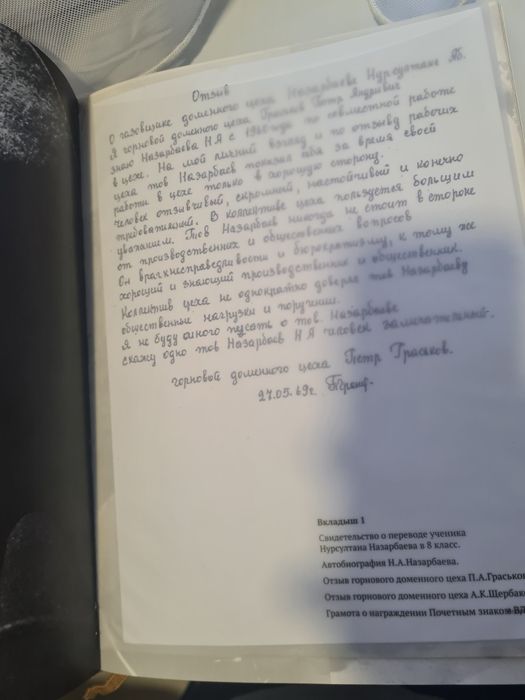 Отзыв
О газовщике доменного цеха Назарбаеве Нурсултане Аб.
Я горновой доменного цеха Грасков Петр Андреевич
знаю Назарбаева Н Я с по совместной работе
в цехе. На мой личный взгляд и по отзыву рабочих
цеха тов Назарбаев показал себя за время своей
работы в цехе только в хорошую сторону.
Человек отзывчивый, скромный, настойчивый и конечно
требовательный. В коллективе цеха пользуется большим
уважением. Тов Назарбаев никогда не стоит в стороне
от производственных и общественных вопросов
Он враг несправедливости и бюрократизму, к тому же
хороший и знающий производственник и общественник.
Коллектив цеха не однократно доверял тов Назарбаеву
общественные нагрузки и поручения.
Я не буду много писать о тов. Назарбаеве
скажу одно тов Назарбаев Н Я человек замечательный.
горновой доменного цеха Петр Грасков.
27.05.69г.
Вкладыш 1
Свидетельство о переводе ученика
Нурсултана Назарбаева в 8 класс.
Автобиография Н.А.Назарбаева.
Отзыв горнового доменного цеха П.А.Грасько
Отзыв горнового доменного цеха А.К.Щербак
Грамота о награждении Почетным знаком ВД